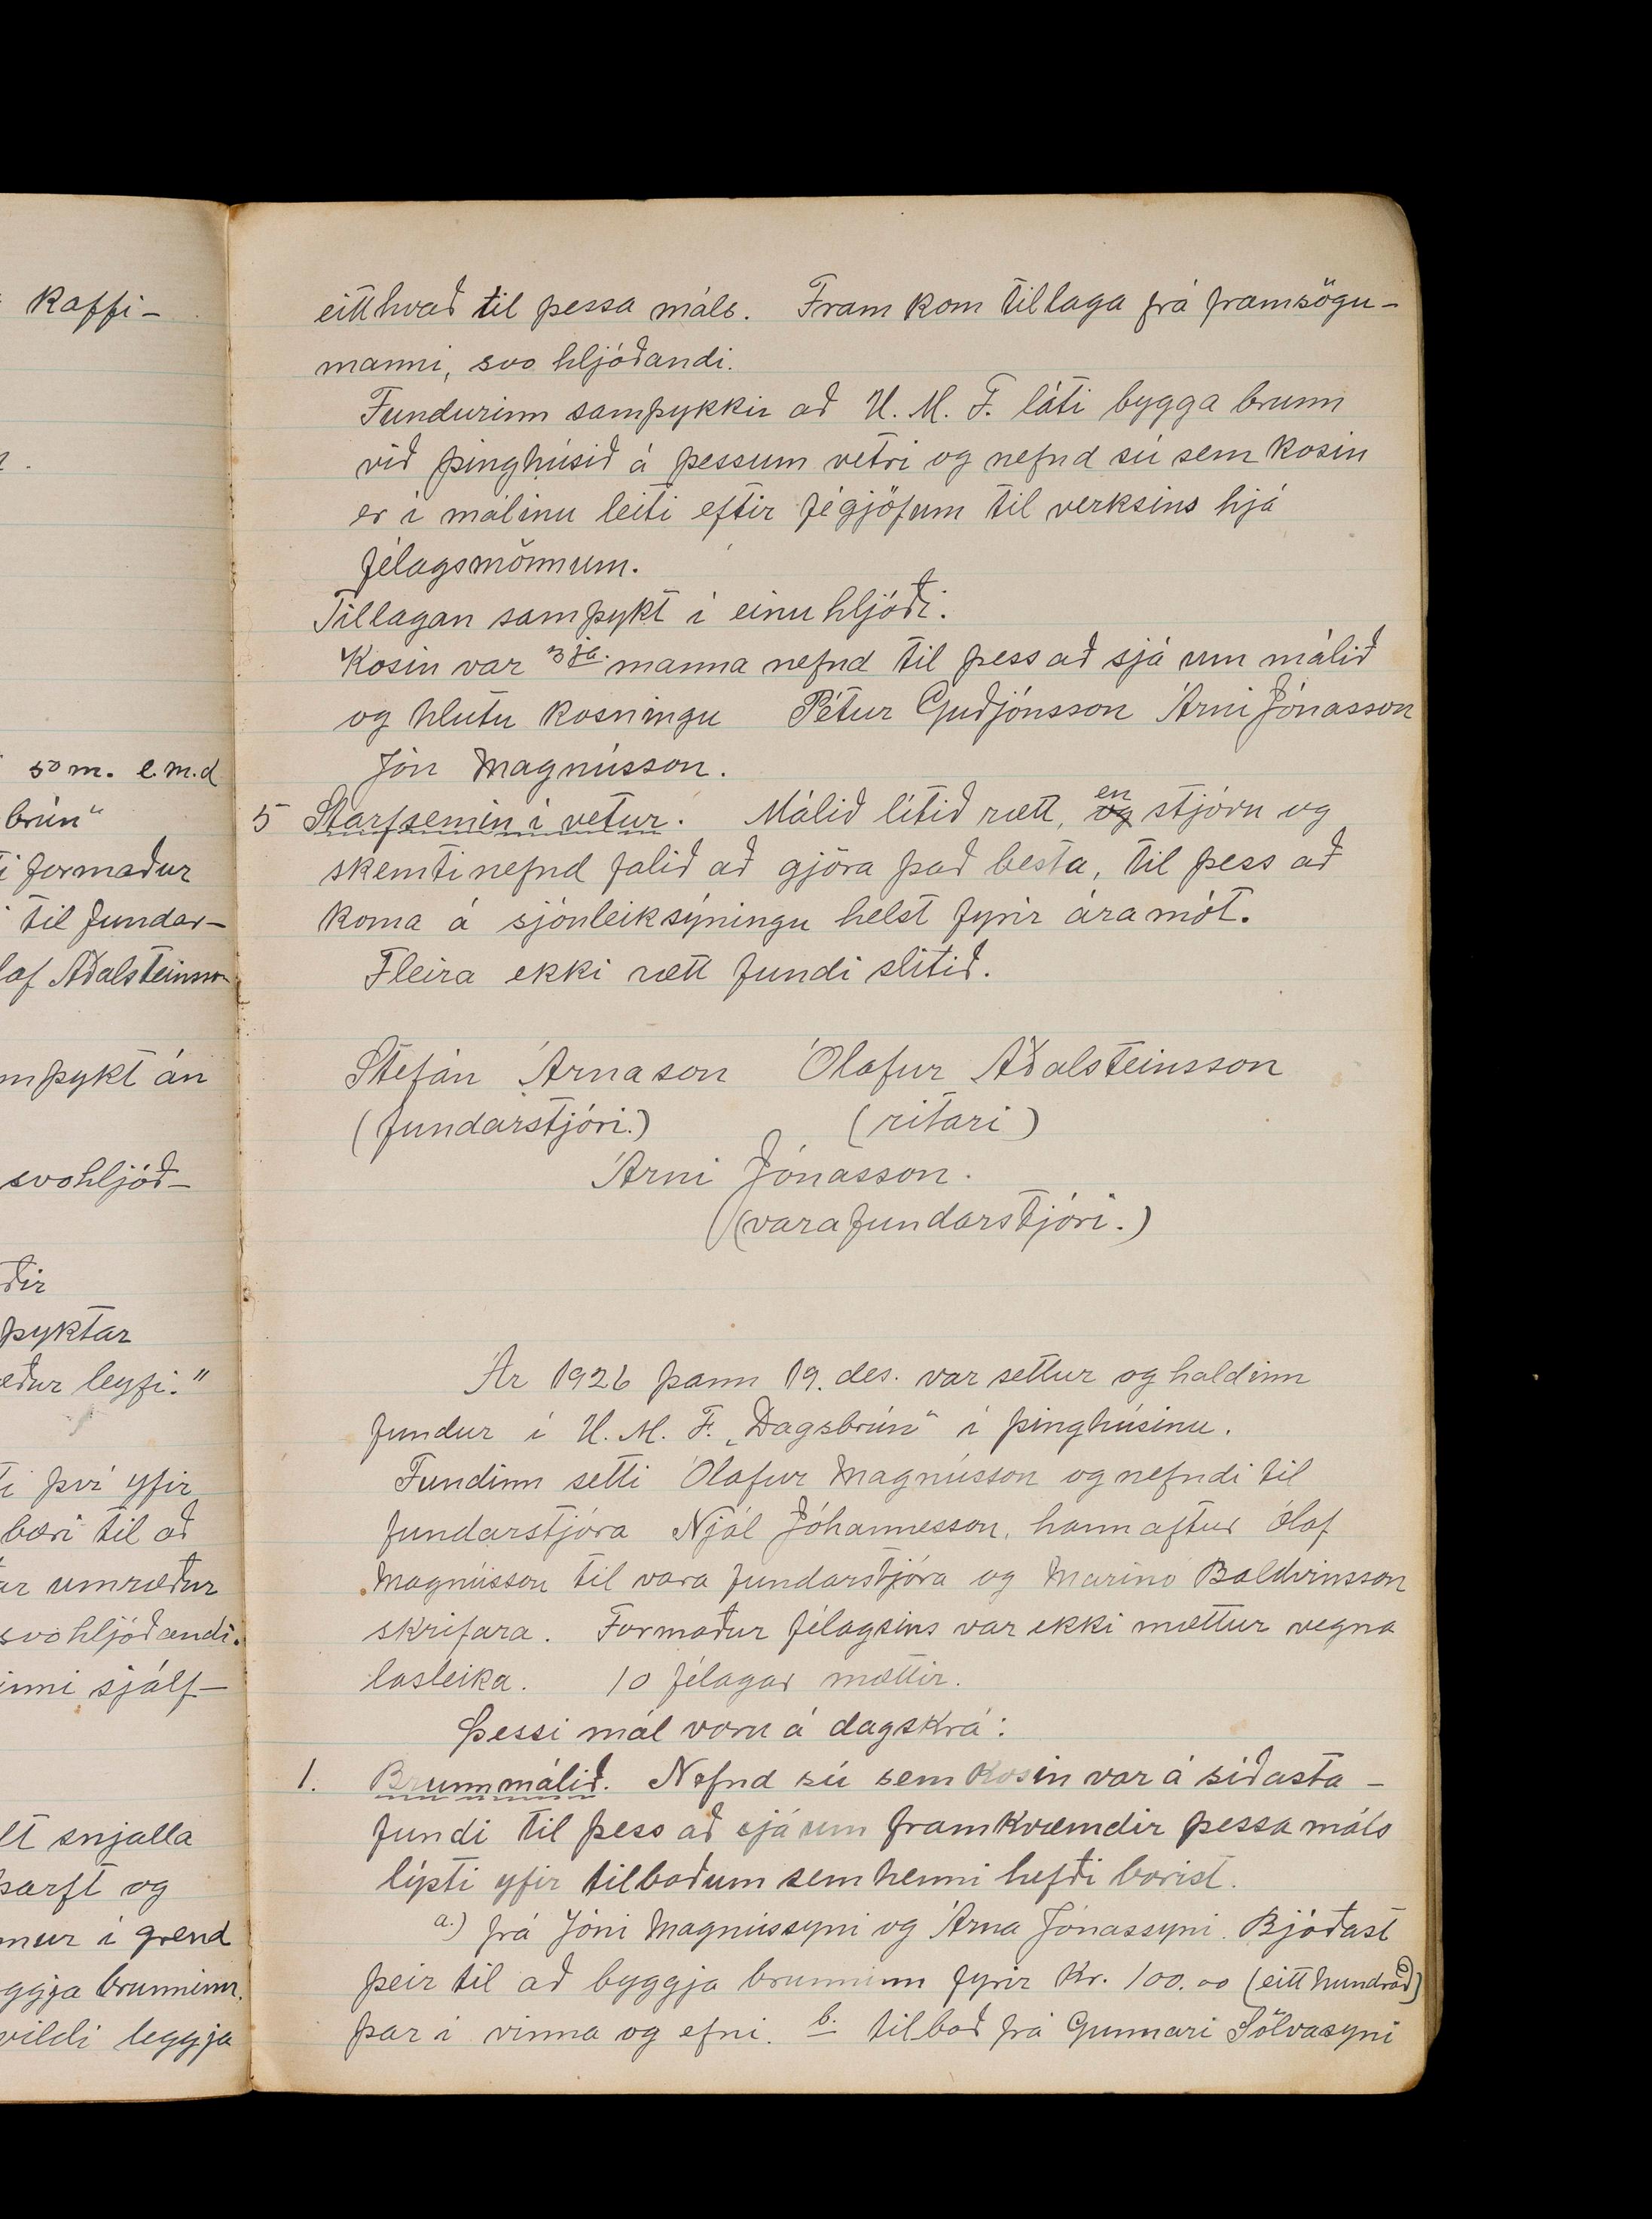 Kaffi-
50 m. e.m.d
brún"
formaður
til fundar-
laf Aðalsteinsson
mþykt án
svohljóð-
ðir
þyktar
eður leyfi."
ti því yfir
bæri til að
ar umræður
svohljóðandi.
inni sjálf-
lt snjalla
þarft og
mur í grend
ggja brunninn.
vildi leggja
eitthvað til þessa máls. Fram kom tillaga frá framsögu-
manni, svo hljóðandi.
Fundurinn samþykkir að U. M. F. láti bygga brunn
við þinghúsið á þessum vetri og nefnd sú sem kosin
er í málinu leiti eftir fégjöfum til verksins hjá
félagsmönnum.
Tillagan samþykt í einu hljóði.
Kosin var 3ja. manna nefnd til þess að sjá um málið
og hlutu kosningu Pétur Guðjónsson Árni Jónasson
Jón Magnússon.
5 Starfsemin í vetur. Málið lítið rætt, og en stjórn og
skemtinefnd falið að gjöra það besta, til þess að
koma á sjónleiksýningu helst fyrir áramót.
Fleira ekki rætt fundi slitið.
Stefán Árnason Ólafur Aðalsteinsson
(fundarstjóri.) (ritari)
Árni Jónasson.
(varafundarstjóri.)
Ár 1926 þann 19. des. var settur og haldinn
fundur í U. M. F. „Dagsbrún" í þinghúsinu.
Fundinn setti Ólafur Magnússon og nefndi til
fundarstjóra Njál Jóhannesson, hann aftur Ólaf
Magnússon til vara fundarstjóra og Marinó Baldvinsson
skrifara. Formaður félagsins var ekki mættur vegna
lasleika. 10 félagar mættir.
Þessi mál voru á dagskrá:
1. Brunnmálið. Nefnd sú sem kosin var á síðasta-
fundi til þess að sjá um framkvæmdir þessa máls
lýsti yfir tilboðum sem henni hefði borist.
a.) frá Jóni Magnússyni og Árna Jónassyni. Bjóðast
þeir til að byggja brunninn fyrir Kr. 100.00 (eitt hundrað)
þar í vinna og efni. b. tilboð frá Gunnari Sölvasyni